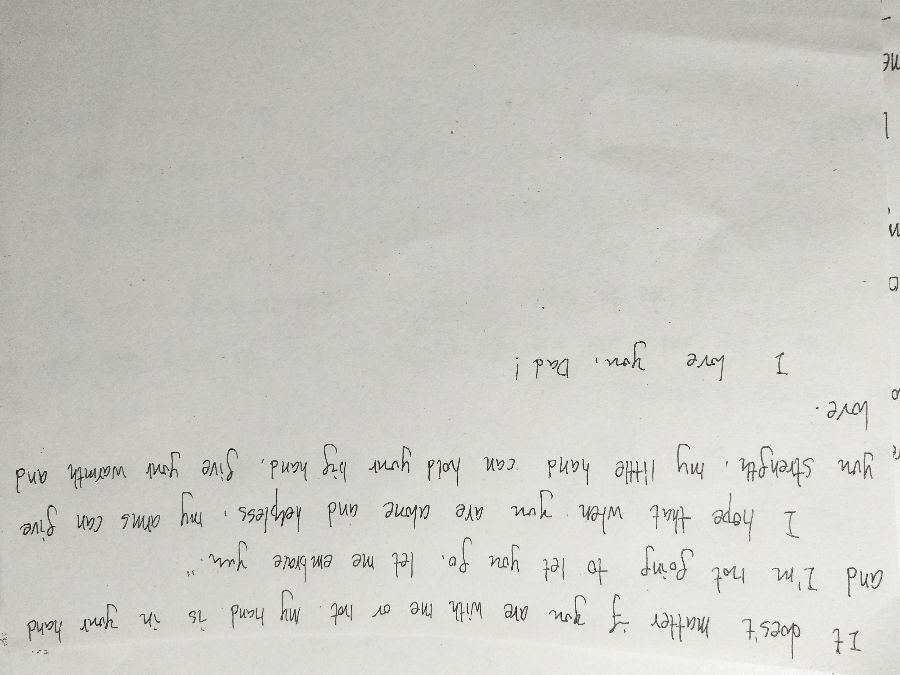 It does't matter if you are with me or not. My hand is in your hand
and I'm not going to let you go. let me embrace you."
I hope that when you are alone and helpless, my arms can give
you strength, my little hand can hold your big hand, give your warmth and
love.
I love you, Dad!